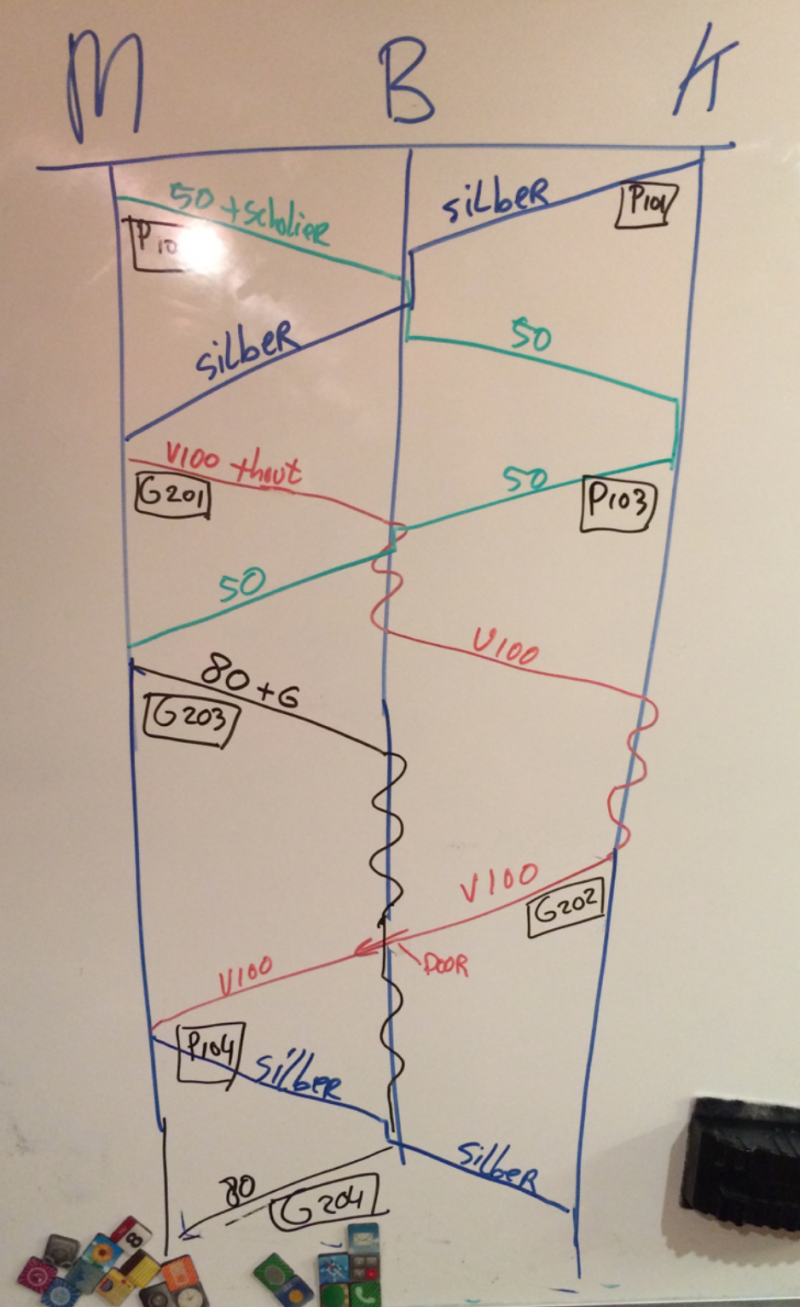 M B K
50 + Scholier
silber
P101
silber
50
V100 thout
G201
50
P103
50
V100
80 + G
G203
V100
G202
V100
DOOR
P104
silber
silber
80
G204
8